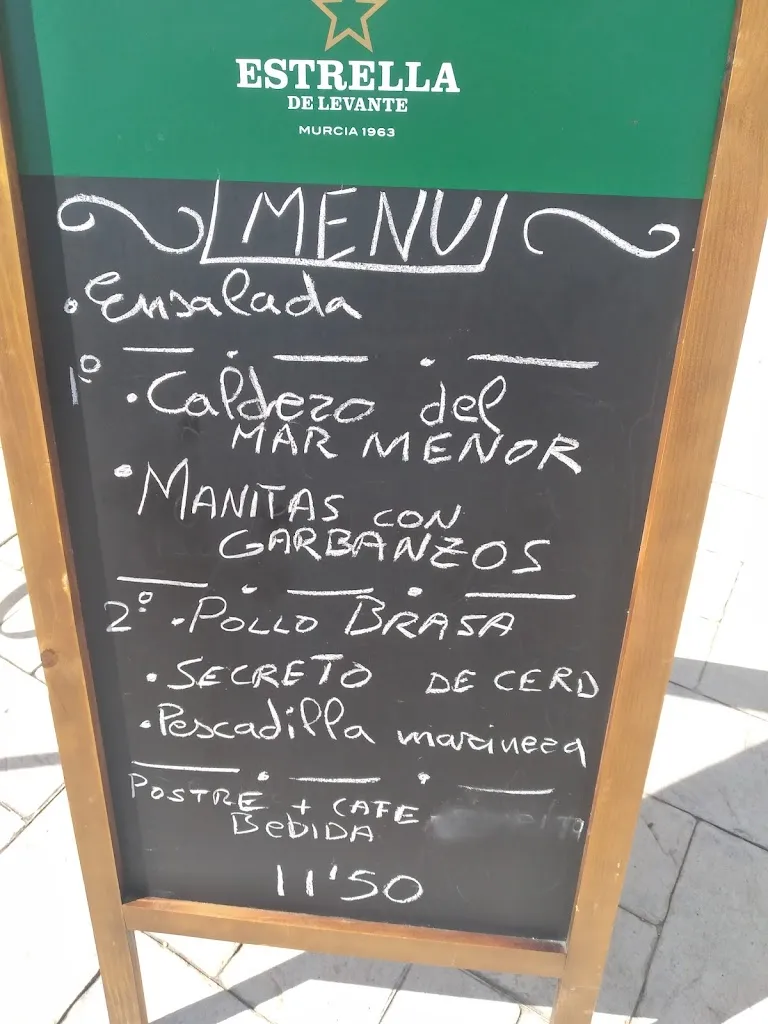 ESTRELLA
DE LEVANTE
MURCIA 1963
MENU
. Ensalada
1º . Caldero del
MAR MENOR
. MANITAS CON
GARBANZOS
2º . POLLO BRASA
. SECRETO DE CERD
. Pescadilla marinera
POSTRE + CAFE
BEBIDA
11'50